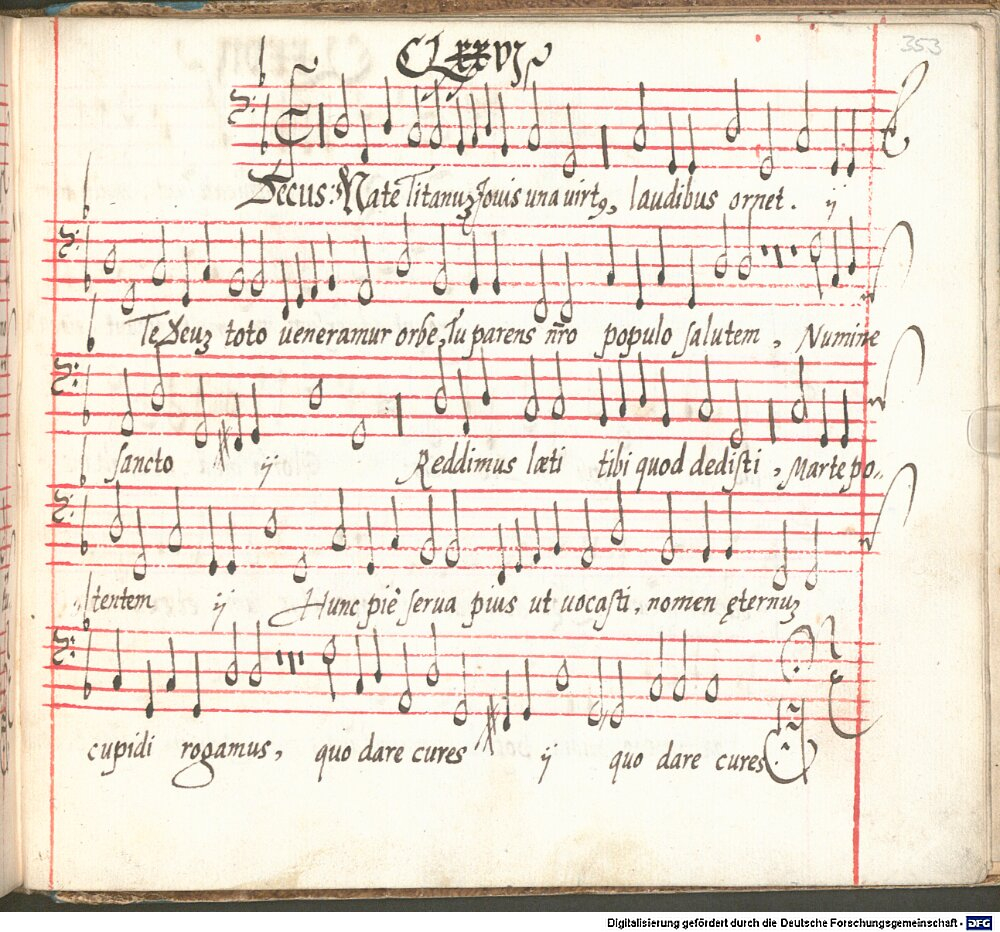 CLXXVIJ
353
Decus: Nate Titanuꝫ Jovis una uirtꝰ, laudibus ornet. ij
Te Deuꝫ toto ueneramur orbe, Tu parens nr̄o populo salutem, Numine
sancto ij Reddimus læti tibi quod dedisti, Marte po-
tentem ij Hunc piē serua pius ut uocasti, nomen ęternuꝫ
cupidi rogamus, quo dare cures ij quo dare cures
Digitalisierung gefördert durch die Deutsche Forschungsgemeinschaft - DFG